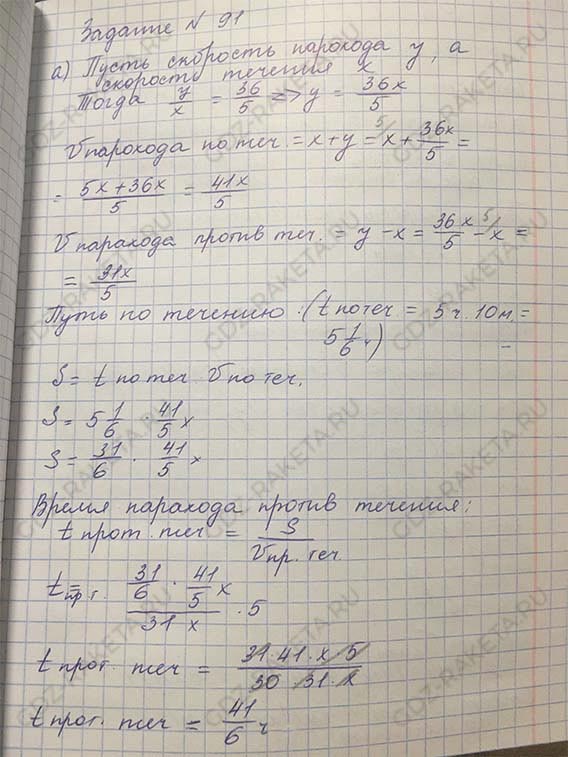 Задание № 91
а) Пусть скорость парохода y, а
скорость течения x
Тогда y/x = 36/5 => y = 36x/5
V парохода по теч. = x + y = x + 36x/5 =
= (5x + 36x)/5 = 41x/5
V парахода против теч. = y - x = 36x/5 - x =
= 31x/5
Путь по течению. (t по теч = 5 ч. 10 м =
5 1/6 ч)
S = t по теч V по теч.
S = 5 1/6 · 41/5 x
S = 31/6 · 41/5 x
Время парахода против течения:
t прот. теч = S / V пр. теч
t пр т. = (31/6 · 41/5 x) / (31 x) · 5
t прот. теч = (31 · 41 · x · 5) / (30 · 31 · x)
t прот. теч = 41/6 ч
GDZ-RAKETA.RU